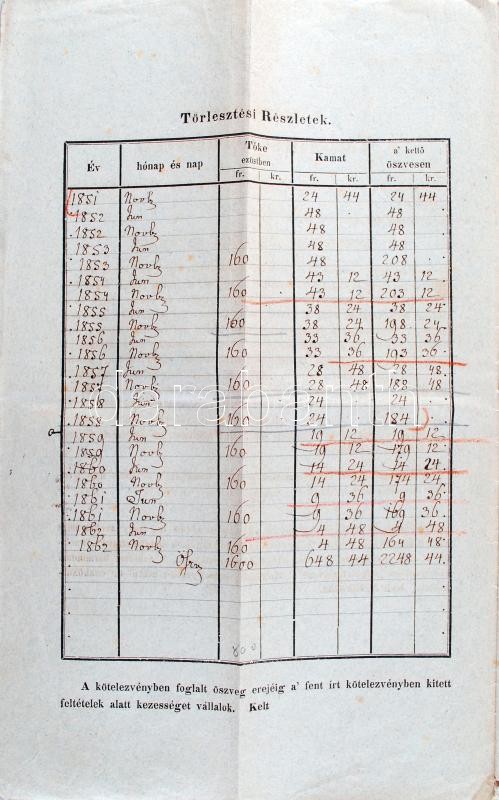 Törlesztési Részletek.
Év hónap és nap Tőke ezüstben Kamat a' kettő öszvesen
fr. kr. fr. kr. fr. kr.
1851 Novbr 24 44 24 44
1852 Jun 48 . 48
1852 Novbr 48 48
1853 Jun 48 48
1853 Novbr 160 48 208
1854 Jun 43 12 43 12
1854 Novbr 160 43 12 203 12
1855 Jun 38 24 38 24
1855 Novbr 160 38 24 198 24
1856 Jun 33 36 33 36
1856 Novbr 160 33 36 193 36
1857 Jun 28 48 28 48
1857 Novbr 160 28 48 188 48
1858 Jun 24 24
1858 Novbr 160 24 184
1859 Jun 19 12 19 12
1859 Novbr 160 19 12 179 12
1860 Jun 14 24 14 24
1860 Novbr 160 14 24 174 24
1861 Jun 9 36 9 36
1861 Novbr 160 9 36 169 36
1862 Jun 4 48 4 48
1862 Novbr 160 4 48 164 48
1600 648 44 2248 44
800
darabanth
A kötelezvényben foglalt öszveg erejéig a' fent írt kötelezvényben kitett
feltételek alatt kezességet vállalok. Kelt